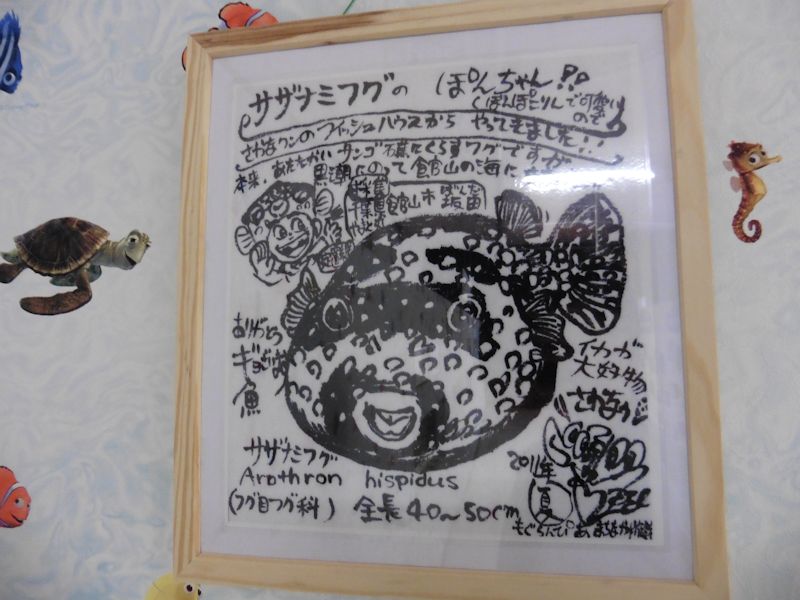 サザナミフグの ぽんちゃん!!
ぽんぽこりんで可愛いので
さかなクンのフィッシュハウスから やってきました!!
本来、あたたかい サンゴ礁にくらすフグですが
黒潮にのって館山の海に
館山市 坂田
ばんだ
おりがとう
ギョざいま
魚
イカが
大好物
さかなクン
サザナミフグ
Arothron hispidus
(フグ目フグ科) 全長 40~50cm
2011年
夏
もぐらんぴあ まちなか水族館